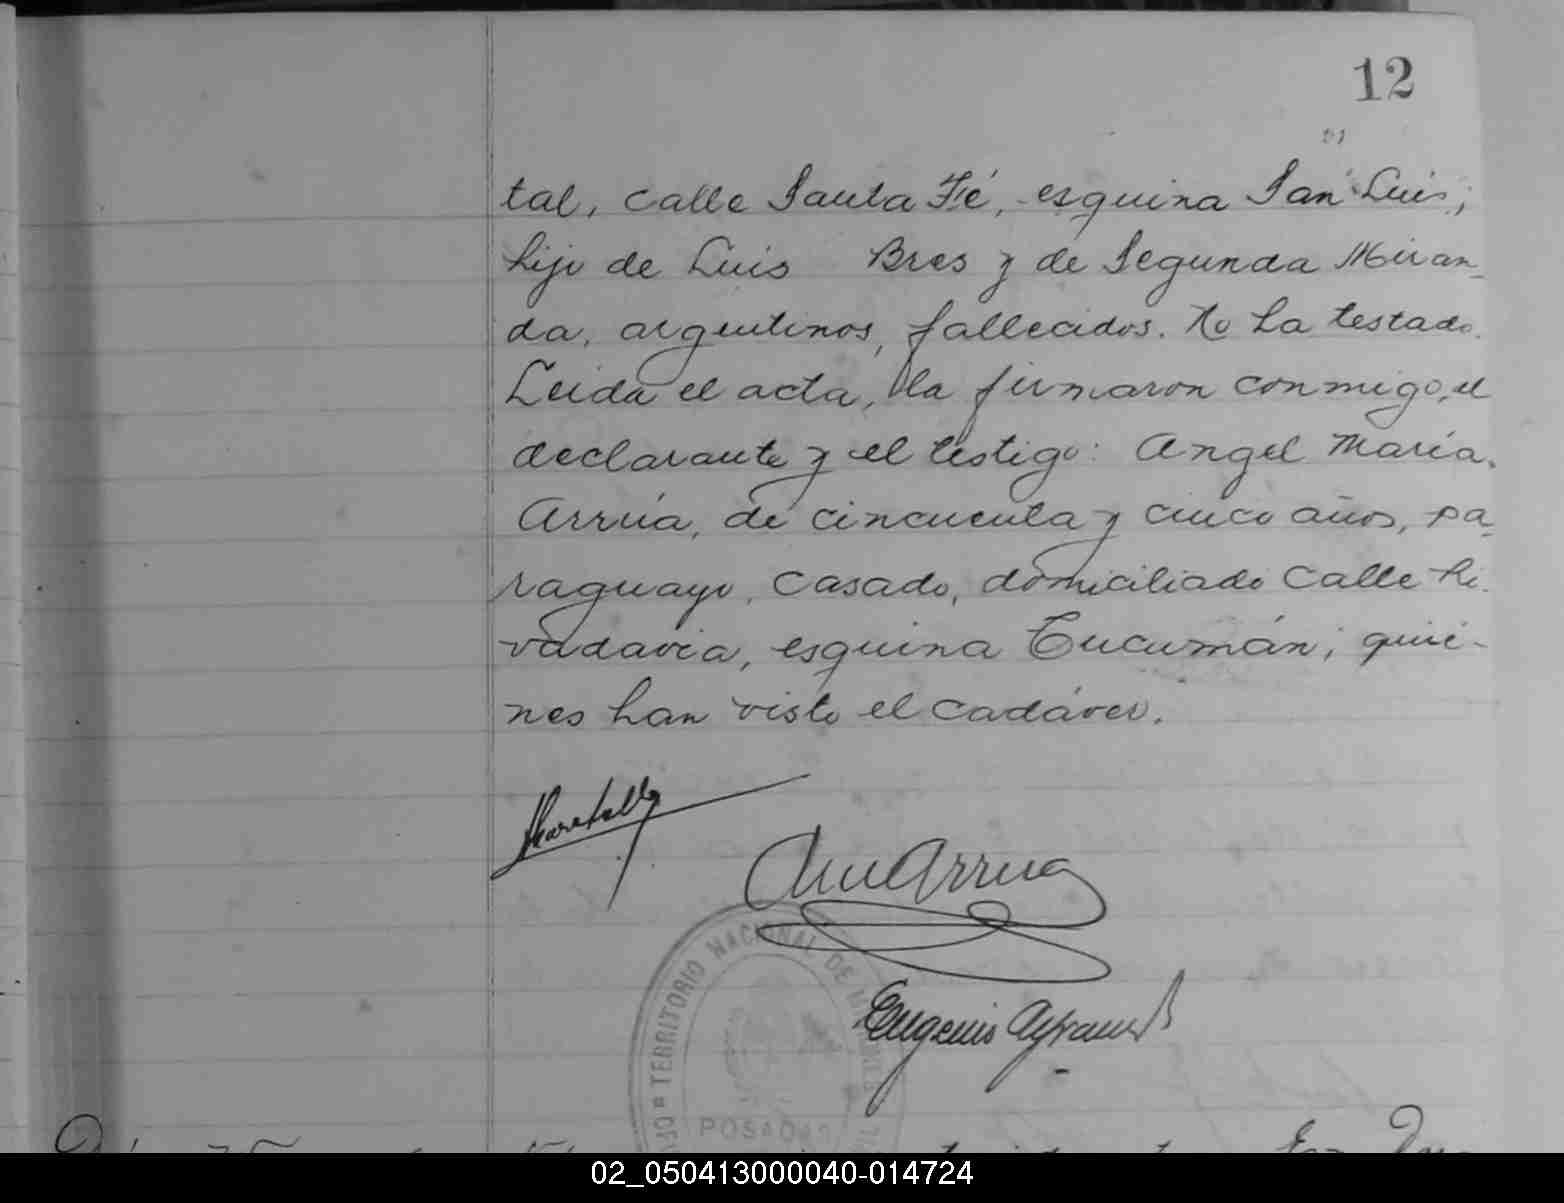 12
tal, calle Santa Fé, esquina San Luis;
hijo de Luis Bres y de Segunda Miran_
da, argentinos, fallecidos. No ha testado.
Leida el acta, la firmaron conmigo, el
declarante y el testigo: Angel María
Arrúa, de cincuenta y cinco años, pa_
raguayo, casado, domiciliado calle Ri_
vadavia, esquina Tucumán; quie-
nes han visto el cadáver.
Arrua
TERRITORIO NACIONAL DE MISIONES
Eugenio
POSADAS
02_050413000040-014724